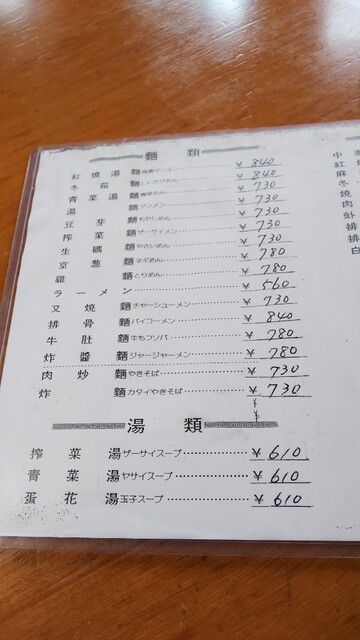 麵類
紅燒湯麵 ¥840
冬茹麵しいたけめん ¥840
青菜湯麵 ¥730
湯麵タンメン ¥730
豆芽麵もやしめん ¥730
搾菜麵ザーサイメン ¥730
生碼麵やさいめん ¥730
京葱麵ネギめん ¥780
雞麵とりめん ¥780
ラーメン ¥560
叉燒麵チャーシューメン ¥730
排骨麵パイコーメン ¥840
牛肚麵牛もツソバ ¥780
炸醬麵ジャージャーメン ¥780
肉炒麵やきそば ¥730
炸麵カタイやきそば ¥730
¥
¥
湯類
搾菜湯ザーサイスープ ¥610
青菜湯ヤサイスープ ¥610
蛋花湯玉子スープ ¥610
中
紅
麻
冬
燒
肉
排
排
白